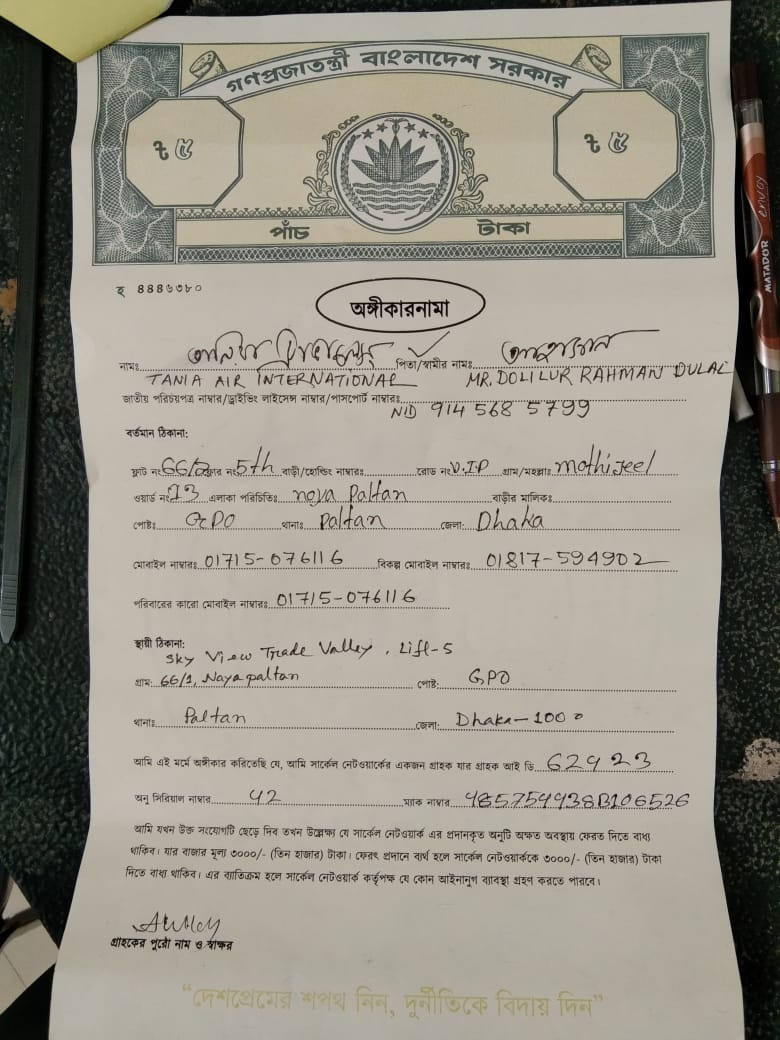 গণপ্রজাতন্ত্রী বাংলাদেশ সরকার
৳ ৫
৳ ৫
পাঁচ টাকা
হ ৪৪৪৬৩৮০
অঙ্গীকারনামা
তানিয়া
নামঃ পিতা/স্বামীর নামঃ
TANIA AIR INTERNATIONAL MR. DOLILUR RAHMAN DULAL
জাতীয় পরিচয়পত্র নাম্বার/ড্রাইভিং লাইসেন্স নাম্বার/পাসপোর্ট নাম্বারঃ
NID 914 568 5799
বর্তমান ঠিকানা:
ফ্লাট নং 5th বাড়ী/হোল্ডিং নাম্বারঃ রোড নং V.I.P গ্রাম/মহল্লাঃ Mothijeel
ওয়ার্ড নং 13 এলাকা পরিচিতিঃ noya Paltan বাড়ীর মালিকঃ
পোষ্টঃ GPO থানাঃ Paltan জেলা: Dhaka
মোবাইল নাম্বারঃ 01715-076116 বিকল্প মোবাইল নাম্বারঃ 01817-594902
পরিবারের কারো মোবাইল নাম্বারঃ 01715-076116
স্থায়ী ঠিকানা:
Sky View Trade Valley, Lift-5
গ্রাম: 66/1, Nayapaltan পোষ্ট: GPO
থানাঃ Paltan জেলা: Dhaka-1000
আমি এই মর্মে অঙ্গীকার করিতেছি যে, আমি সার্কেল নেটওয়ার্কের একজন গ্রাহক যার গ্রাহক আই ডি 62923
অনু সিরিয়াল নাম্বার 42 ম্যাক নাম্বার 485754438B106526
আমি যখন উক্ত সংযোগটি ছেড়ে দিব তখন উল্লেক্ষ্য যে সার্কেল নেটওয়ার্ক এর প্রদানকৃত অনুটি অক্ষত অবস্থায় ফেরত দিতে বাধ্য
থাকিব। যার বাজার মূল্য ৩০০০/- (তিন হাজার) টাকা। ফেরৎ প্রদানে ব্যর্থ হলে সার্কেল নেটওয়ার্ককে ৩০০০/- (তিন হাজার) টাকা
দিতে বাধ্য থাকিব। এর ব্যাতিক্রম হলে সার্কেল নেটওয়ার্ক কর্তৃপক্ষ যে কোন আইনানুগ ব্যাবস্থা গ্রহণ করতে পারবে।
গ্রাহকের পুরো নাম ও স্বাক্ষর
“দেশপ্রেমের শপথ নিন, দুর্নীতিকে বিদায় দিন”
MATADOR enjoy